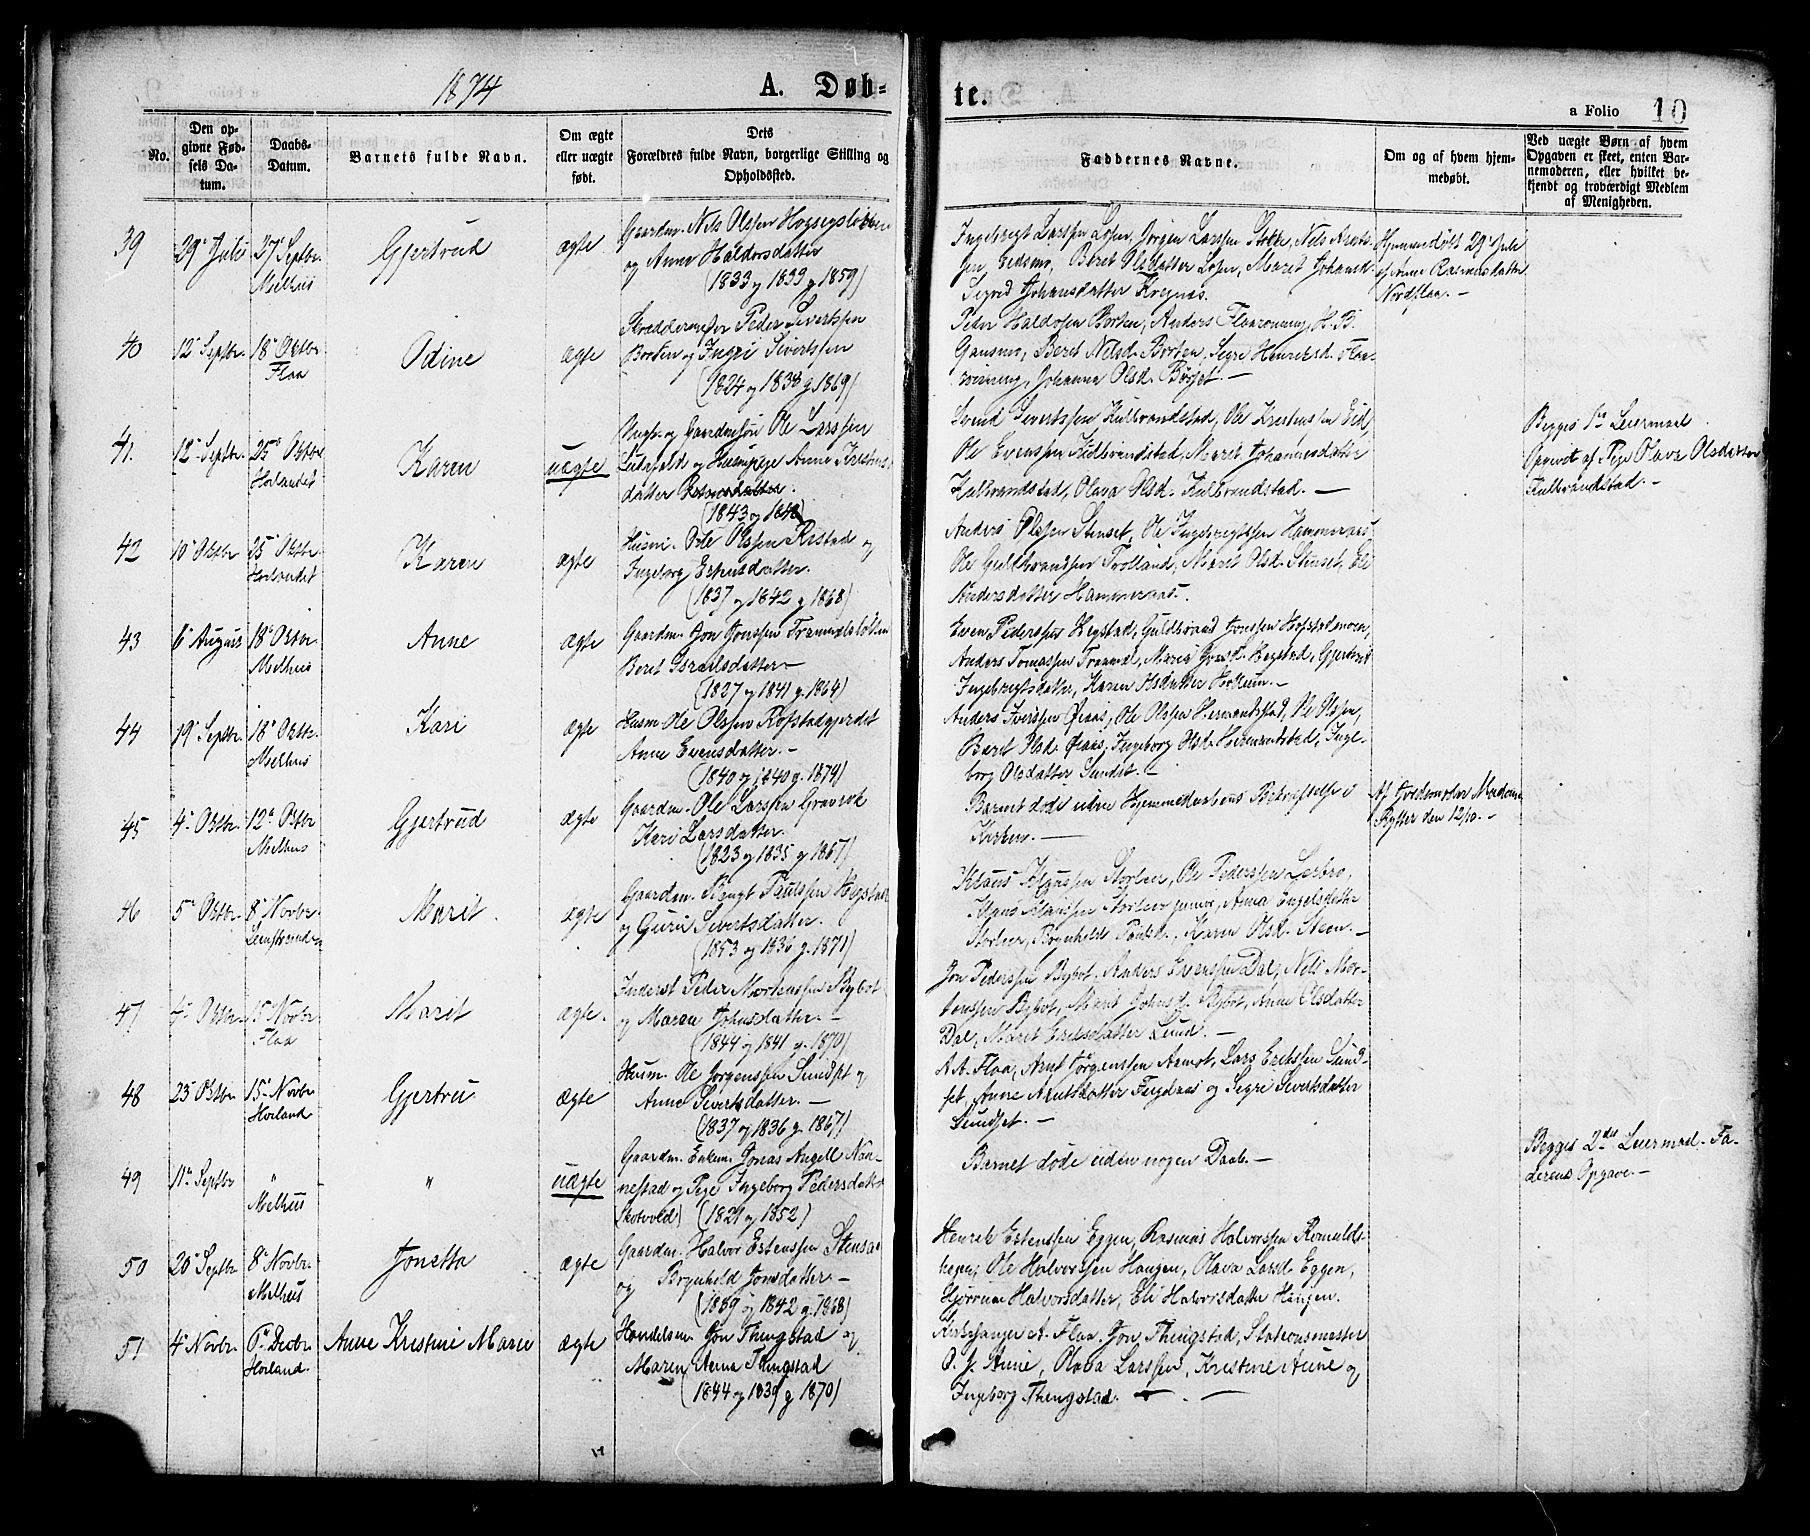 1874
A. Døb-
te.
a Folio 10
No.
Den op-
givne Fød-
sels Da-
tum.
Daabs-
Datum.
Barnets fulde Navn.
Om ægte
eller uægte
født.
Dets
Forældres fulde Navn, borgerlige Stilling og
Opholdssted.
Faddernes Navne.
Om og af hvem hjem-
medøbt.
Ved uægte Børn af hvem
Opgaven er skeet, enten Bar-
nemoderen, eller hvilket be-
kjendt og troværdigt Medlem
af Menigheden.
39
29 Juli
27 Septbr
Melhus
Gjertrud
ægte
Gaardm. Nils Olssen
og Anne Haldorsdatter
(1833 og 1833 g. 1859)
Ingebregt Larssen Losen, Jørgen Larssen Stokke, Nils Arnts-
sen, Beret Olsdatter Losen, Maret Johansd.
Sigrid Johansdatter Kregnæs.
Hjemmedøbt 29 Juli
af Anne Rasmusdatter
Nordflaa. –
40
12 Septbr.
18 Oktbr
Flaa
Odine
ægte
Skræddermester Peder Sivertssen
Borten og Ingri Sivertssen
(1824 og 1833 g. 1869)
Peder Haldosen Borten, Anders Flaarønning, H. B.
Gansmo, Beret Nilsd. Borten, Segre Henriksd. Flaa-
rønning, Johanna Olsd. –
41.
12 Septbr.
25 Oktbr
Horlandet
Karen
uægte
Ungk. og Gaardmsøn Ole Larssen
og Huusmpige Anne Kristens-
datter
(1843 og
Svend Sivertssen Kulbrandstad, Ole Kristensen Eid,
Ole Evenssen Kulbrandstad, Maret Johannesdatter
Kulbrandstad, Olava Olsd. Kulbrandstad. –
Begges 1ste Leiermaal
Opgivet af Pige Olava Olsdatter
Kulbrandstad. –
42
10 Oktbr
25 Oktbr.
Horlandet
Karen
ægte
Husm. Ole Olssen Ristad og
Ingeborg Estensdatter.
(1837 og 1842 g. 1868)
Anders Olssen Stenset, Ole Ingebregtssen Hammernæs,
Ole Guldbrandssen Trolland, Maret Olsd. Stenset, Eli
Andersdatter Hammernæs.
43
6 August
18 Oktbr.
Melhus
Anne
ægte
Gaardm. Jon Jonssen
Beret Israelsdatter –
(1827 og 1841 g. 1864)
Even Pederssen Hegstad, Guldbrand Jonssen Hofstadmoen,
Anders Tomassen Tranmæl, Marit Jonsd. Hegstad, Gjertrud
Ingebregtsdatter, Karen Olsdatter –
44
19 Septbr.
18 Oktbr.
Melhus
Kari
ægte
Husm. Ole Olssen Rofstadgjerdet
Anne Evensdatter. –
(1840 og 1840 g. 1874)
Anders Iverssen Øiaas, Ole Olssen Hermandstad, Ole Olssen,
Beret Olsd. Øiaas, Ingeborg Olsd. Hermandstad, Inge-
borg Olsdatter Sundet. –
45
4 Oktbr.
12 Oktbr
Melhus
Gjertrud
ægte
Gaardm. Ole Larssen Gravrok
Kari Larsdatter.
(1823 og 1835 g. 1867)
Barnet døde uden Hjemmedaabens Bekræftelse i
Kirken. –
Af Jordemoder Madam
Rytter den 12/10. –
46
5 Oktbr
8 Novbr.
Leinstranden
Marit.
ægte
Gaardm. Bengt Paulssen Hegstad
og Guru Sivertsdatter.
(1853 og 1836 g. 1871)
Klaus Hanssen Storler, Ole Pederssen Lerbro,
Hans Hanssen Storler junior, Anna Engelsdatter
Storler, Brynhilde Paulsd., Karen Olsd. Steen. –
47
7 Oktbr.
15 Novbr
Flaa
Marit
ægte.
Inderst Peder Mortenssen Bybot
og Maren Johnsdatter. –
(1844 og 1841 g. 1870)
Jon Pederssen Bybot, Anders Evenssen Dal, Nils Mor-
tenssen Bybot, Marit Johnsd. Bybot, Anne Olsdatter
Dal, Maret Eriksdatter Lund. –
48
23 Oktbr.
15 Novbr
Horland
Gjertru
ægte
Husm. Ole Jørgenssen Sundset og
Anne Sivertsdatter. –
(1837 og 1836 g. 1867)
A. A. Flaa, Arnt Jørgenssen Aamot, Lars Erikssen Sund-
set, Anne Arntsdatter og Segre Sivertsdatter
Sundset. –
49
11 Septbr
"
Melhus
"
uægte
Gaardm. Enkem. Jonas Angell Nan-
nestad og Pige Ingeborg Pedersdatter
Skotvold) (1821 og 1852)
Barnet døde uden nogen Daab. –
Begges 2det Leiermaal. Fa-
derens Opgave. –
50
20 Septbr
8 Novbr.
Melhus
Jonetta
ægte
Gaardm. Halvor Estenssen Stensaa
og Brynhild Jonsdatter. –
(1839 og 1842 g. 1868)
Henrik Estenssen Eggen, Rasmus Halvorssen
Ole Halvorssen Haugen, Olava Larsd. Eggen,
Halvorsdatter, Eli Halvorsdatter Haugen.
51
4 Novbr.
6 Decbr.
Horland.
Anne Kristine Maren
ægte
Handelsm. Jon Thingstad og
Maren Anna Thingstad
(1844 og 1839 g. 1870)
Kirkesanger A. Flaa, Jon Thingstad, Stationsmester
O. J. Aune, Olava Larssen, Kristine Aune og
Ingeborg Thingstad. –